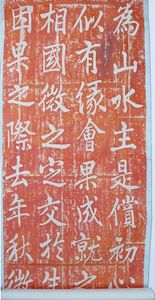 為山水主是償初心
似有緣會果成就之
相國微之定交於生
因果之際去年秋微